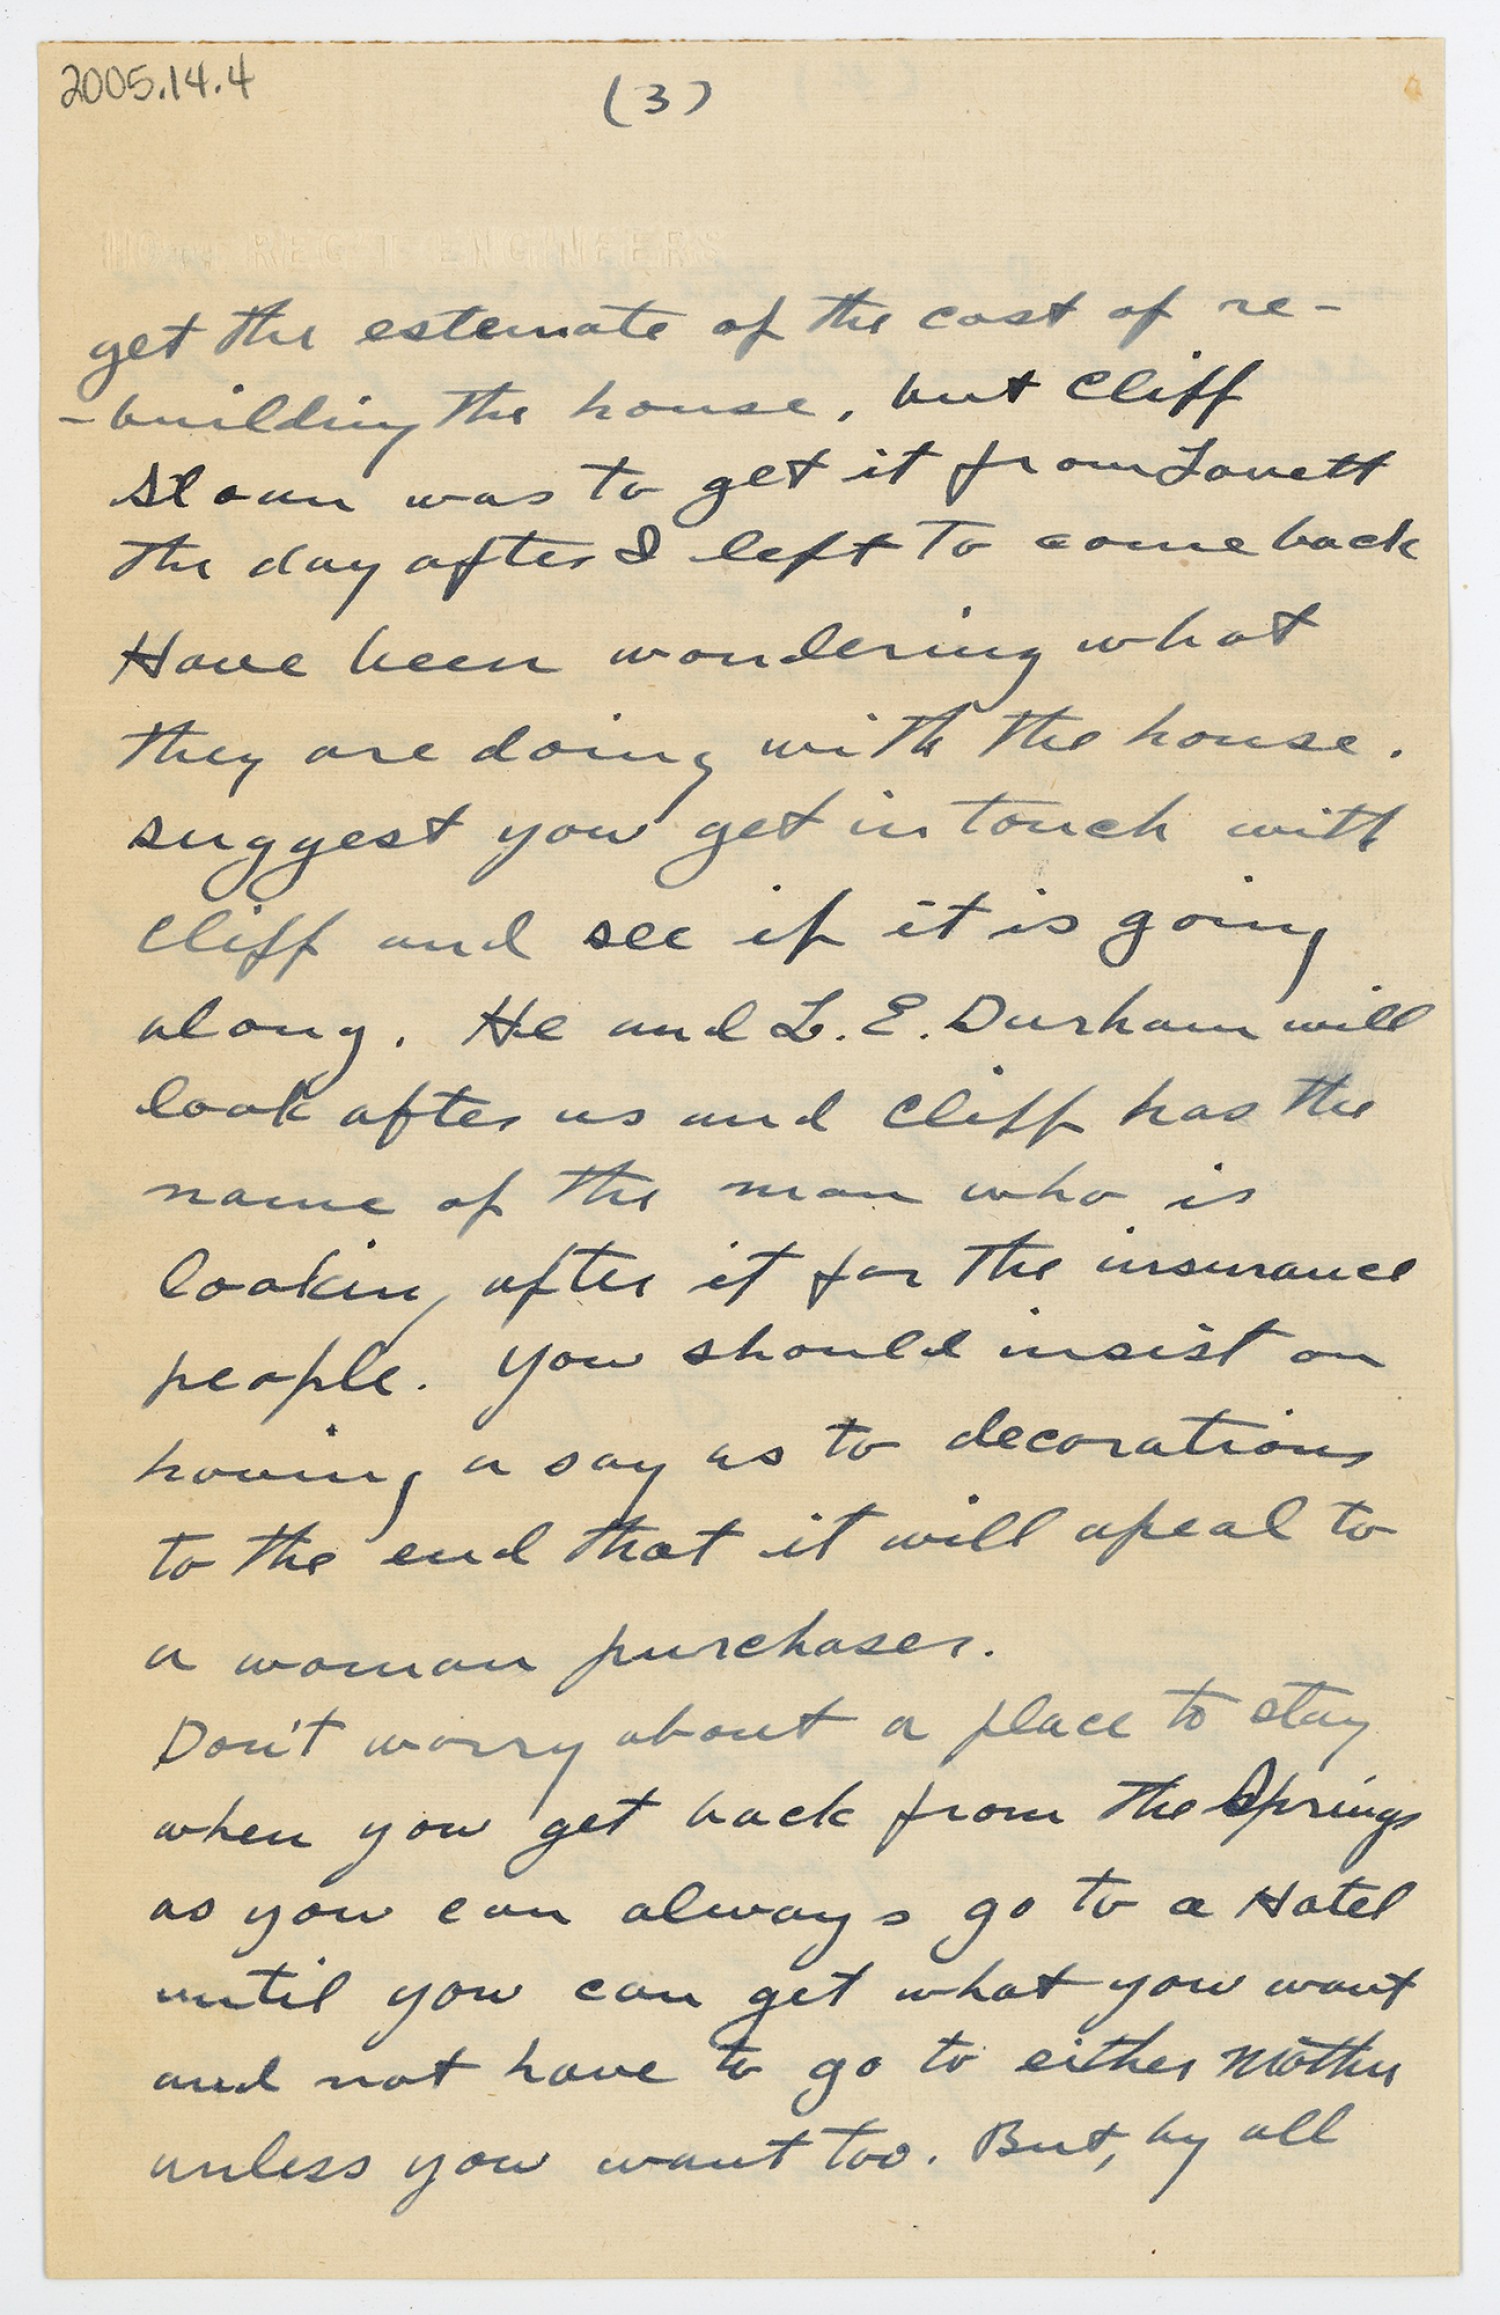 2005.14.4
(3)
110TH REG'T ENGINEERS
get the estemate of the cost of re-
-building the house, but Cliff
Sloan was to get it from Lovett
the day after I left to come back
Have been wondering what
they are doing with the house.
suggest you get in touch with
Cliff and see if it is going
along. He and L. E. Durham will
look after us and Cliff has the
name of the man who is
looking after it for the insurance
people. You should insist on
having a say as to decorations
to the end that it will apeal to
a woman purchaser.
Don't worry about a place to stay
when you get back from the Springs
as you can always go to a Hotel
until you can get what you want
and not have to go to either Mother
unless you want too. But, by all